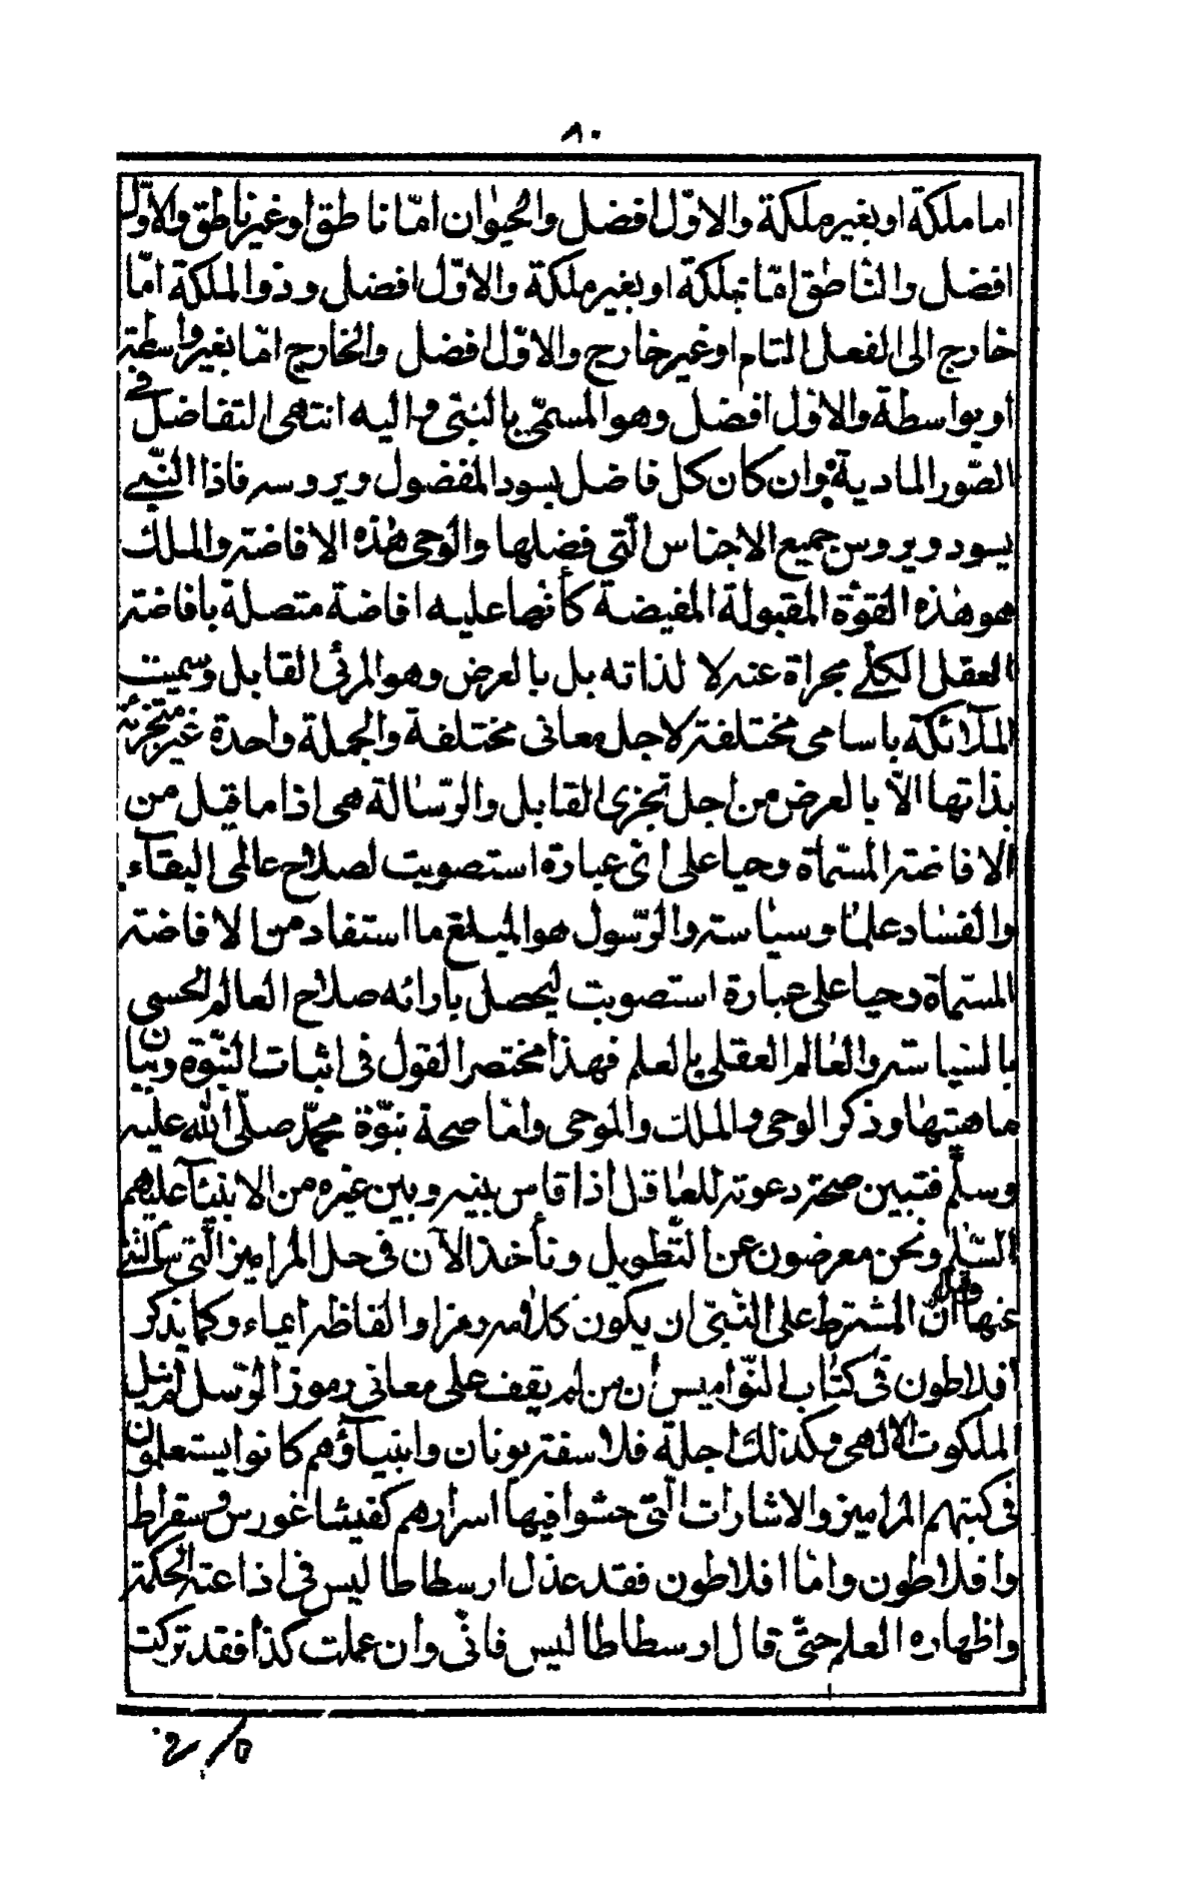 ٨٠
اما ملكة او بغير ملكة والاوّل افضل والحيوان امّا ناطق او غير ناطق والاوّل
افضل والنّاطق امّا بملكة او بغير ملكة والاوّل افضل وذو الملكة امّا
خارج الى الفعل التام او غير خارج والاوّل افضل والخارج امّا بغير واسطة
او بواسطة والاوّل افضل وهو المسمّى بالنبىّ واليه انتهى التفاضل فى
الصّور المادية وان كان كل فاضل يسود المفضول ويروسه فاذا النّبى
يسود ويروس جميع الاجناس الّتى فضلها والوحى هٰذه الافاضة والملك
هو هٰذه القوّة المقبولة المفيضة كأنها عليه افاضة متصلة بافاضة
العقل الكلّى مجراة عنه لا لذاته بل بالعرض وهو المرئى القابل وسميت
الملآئكة باسامى مختلفة لاجل معانى مختلفة والجملة واحدة غير متجزئة
بذاتها الاّ بالعرض من اجل تجزى القابل والرّسالة هى اذا ما قبل من
الافاضة المسمّاة وحيا على اىّ عبارة استصوبت لصلاح عالمى البقآء
والفساد علمًا وسياسة والرّسول هو المبلّغ ما استفاد من الافاضة
المسمّاة وحيا على عبارة استصوبت ليحصل بآرائه صلاح العالم الحسى
بالسّياسة والعالم العقلى بالعلم فهذا مختصر القول فى اثبات النّبوّة وبيان
ماهيتها وذكر الوحى والملك والموحى وامّا صحة نبوّة محمّد صلّى الله عليه
وسلّم فتبين صحة دعوته للعاقل اذا قاس بينه وبين غيره من الانبيآء عليهم
السّلام ونحن معرضون عن التّطويل ونأخذ الآن فى حل المراميز الّتى سألتنى
عنها وقيل انّ المشترط على النّبىّ ان يكون كلامه رمزا والفاظه ايماء وكما يذكر
افلاطون فى كتاب النّواميس ان من لم يقف على معانى رموز الرّسل لم ينل
الملكوت الالهى وكذلك اجلة فلاسفة يونان وانبيآؤهم كانوا يستعملون
فى كتبهم المراميز والاشارات الّتى حشوا فيها اسرارهم كفيثاغورس وسقراط
وافلاطون وامّا افلاطون فقد عذل ارسطاطاليس فى اذاعته الحكمة
واظهاره العلم حتّى قال ارسطاطاليس فانّى وان عملت كذا فقد تركت